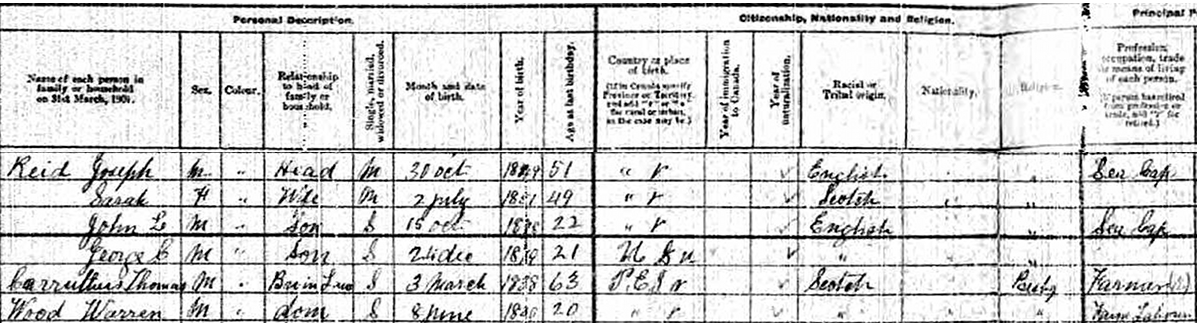 Personal Description. Citizenship, Nationality and Religion. Principal
Name of each person in family or household on 31st March, 1901. Sex. Colour. Relationship to head of family or household. Single, married, widowed or divorced. Month and date of birth. Year of birth. Age at last birthday. Country or place of birth. (If in Canada specify Province or Territory, and add "r" or "u" for rural or urban, as the case may be.) Year of immigration to Canada. Year of naturalization. Racial or Tribal origin. Nationality. Religion. Profession, occupation, trade or means of living of each person. (If person has retired from profession or trade, add "r" for retired.)
Reid Joseph M " Head M 30 oct 51 " r English " Sea Cap
Sarah F " Wife M 2 july 1851 49 " r Scotch "
John L M " Son S 15 oct 22 " r English " Sea Cap
George C M " Son S 24 dec 21 "
Carruthers Thomas M " S 3 March 1838 63 P.E.I r Scotch Farmer
Wood Warren M " dom S 8 june 20 " r " " Farm Labour